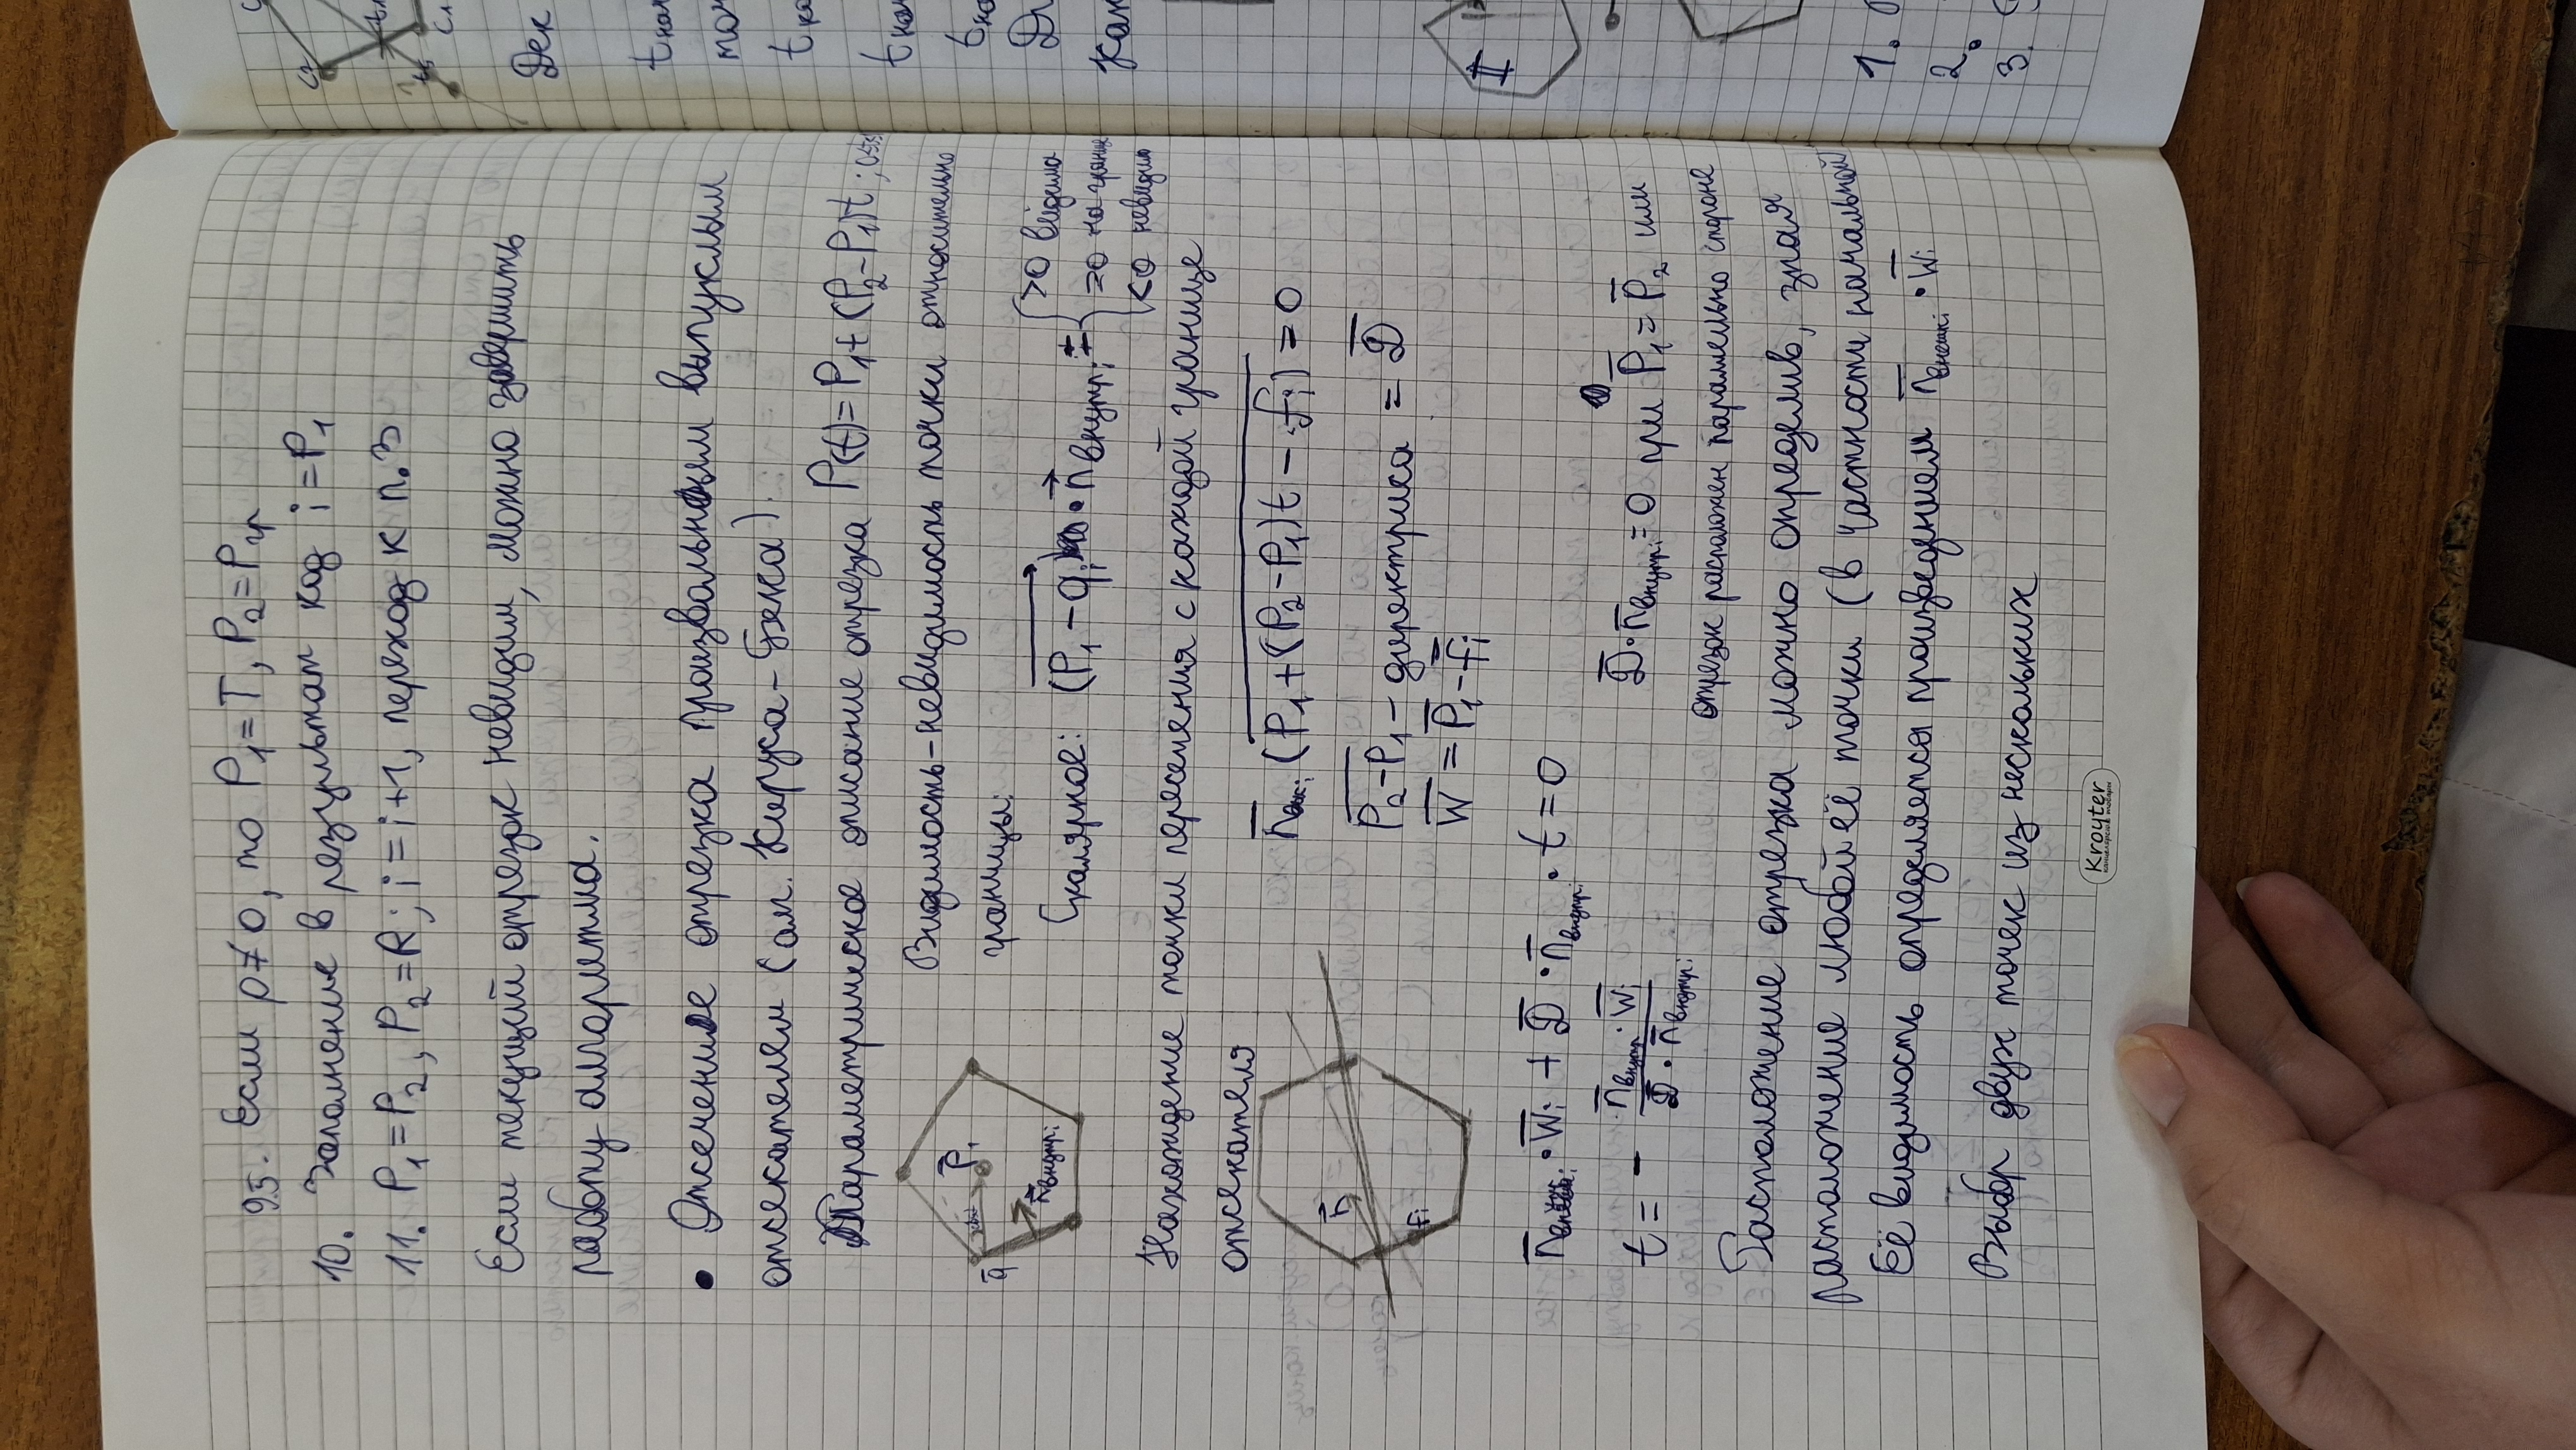 9.5. Если p≠0, то P₁=T, P₂=Pгр
10. Заполнение в результат код i=P₁
11. P₁=P₂, P₂=R; i=i+1, переход к п.3
Если текущий отрезок невидим, можно завершить
работу алгоритма.
• Отсечение отрезка произвольным выпуклым
отсекателем (ал. Кируса-Бека).
Параметрическое описание отрезка P(t)=P₁+(P₂-P₁)t;
Видимость-невидимость точки относительно
границы:
P₁
q
nвнутрi
Скалярное: (P₁-qi)·nвнутрi = { >0 видима
=0 на границе
<0 невидимо
Нахождение точки пересечения с каждой границе
отсекателя
(P₁+(P₂-P₁)t-fi)=0
n
fi
P₂-P₁ - директриса = D
W=P₁-fi
·Wi + D·nвнутрi·t=0
t= - nвнутр·Wi / D·nвнутрi
D·nвнутрi=0 при P₁=P₂ или
отрезок расположен параллельно стороне
Расположение отрезка можно определив, зная
расположение любой её точки (в частности начальной)
Её видимость определяется произведением nвнешнi·Wi
Выбор двух точек из нескольких
Kroyter
канцелярские товары
Дек
tнач
tко
tнач
Как
II
1.
2.
3.